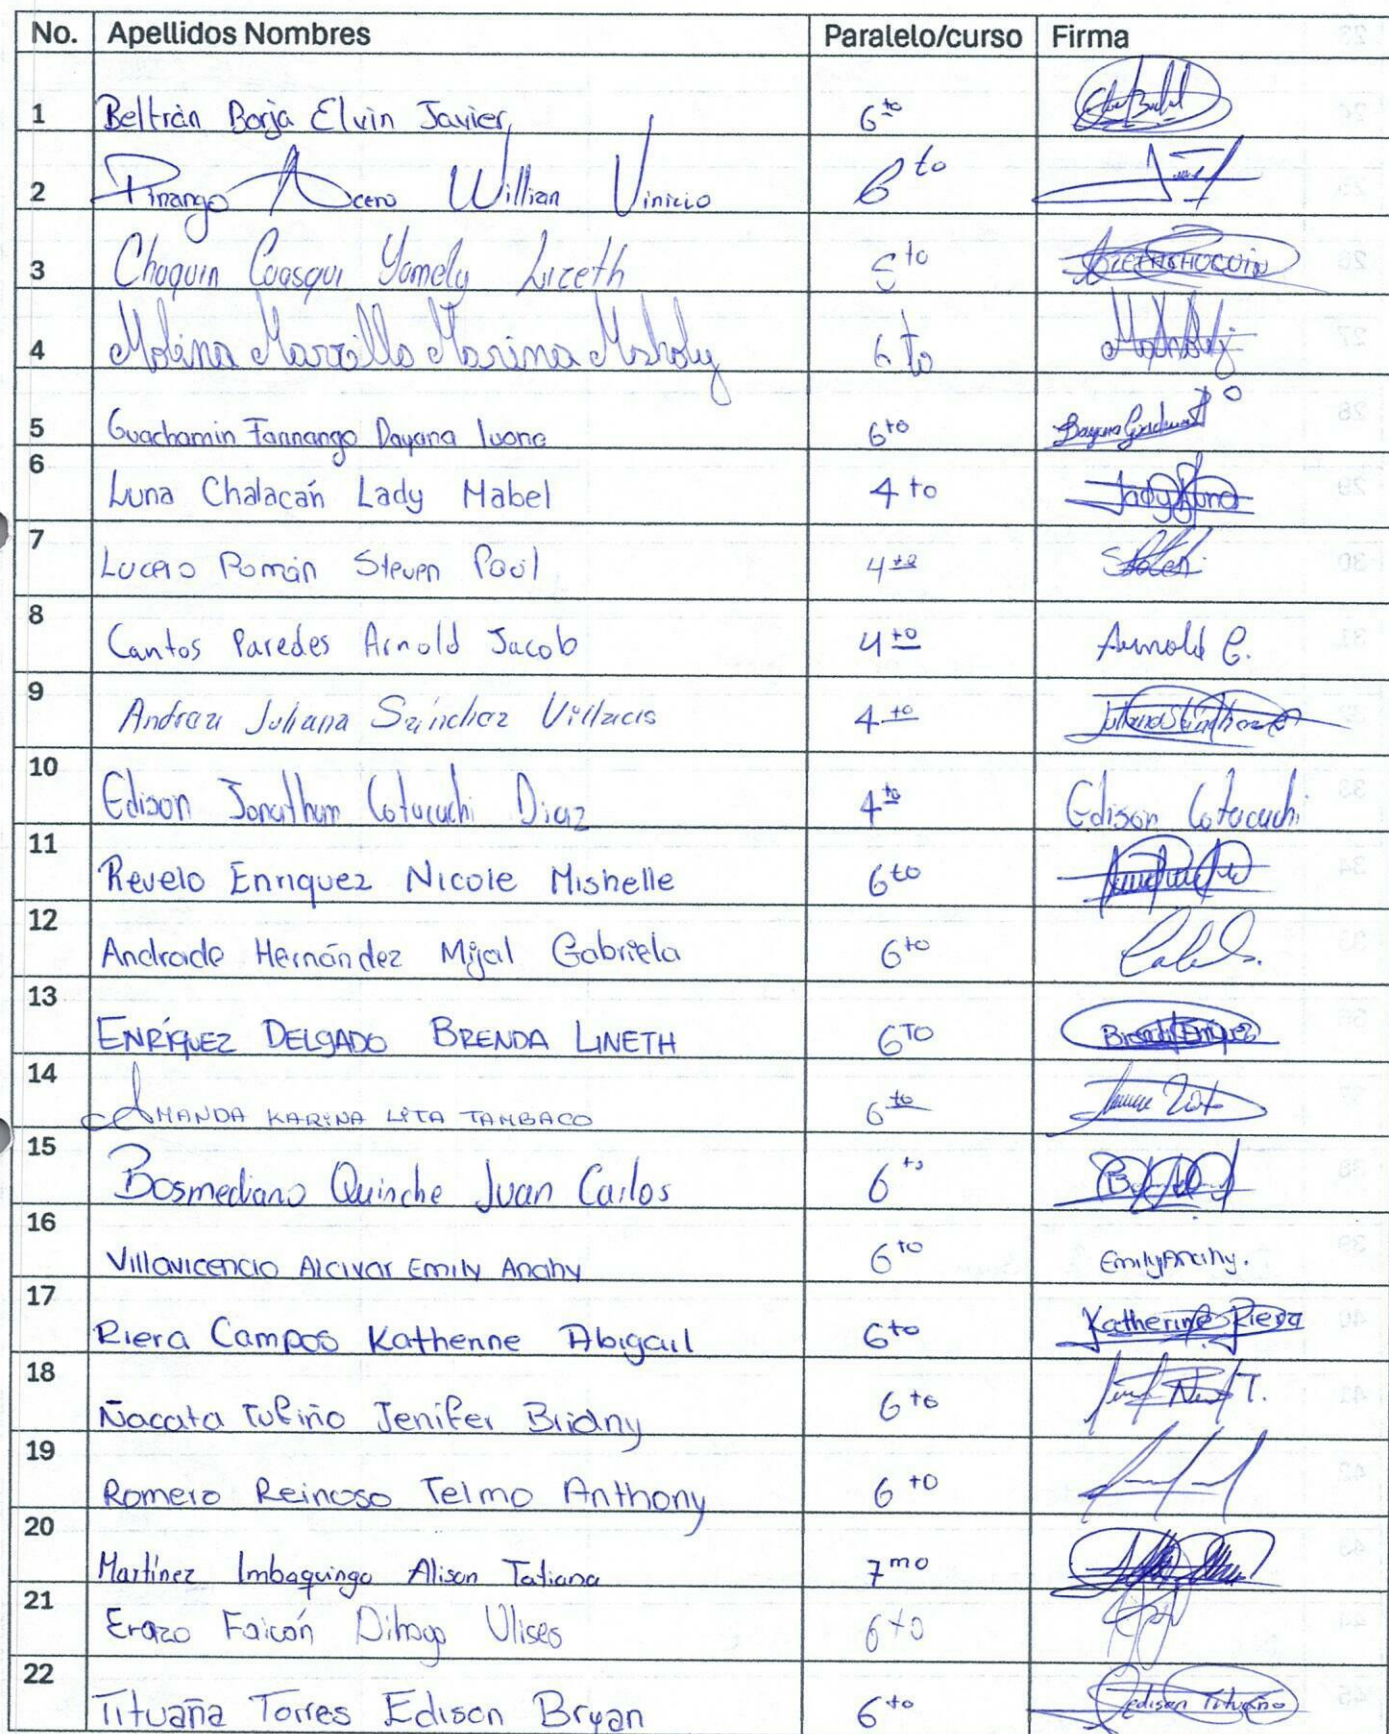 No. Apellidos Nombres Paralelo/curso Firma
1 Beltrán Borja Elvin Javier 6to
2 Pinango Acero Willian Vinicio 6to
3 Choquin Coasqui Yamely Lizeth 5to
4 Molina Marcillo Marina Mishely 6to
5 Guachamin Farinango Dayana Ivone 6to
6 Luna Chalacán Lady Mabel 4to Lady Luna
7 Lucero Román Steven Paúl 4to Steven
8 Cantos Paredes Arnold Jacob 4to Arnold C.
9 Andrea Juliana Sánchez Villacis 4to Juliana Sánchez
10 Edison Jonathan Cotacachi Diaz 4to Edison Cotacachi
11 Revelo Enriquez Nicole Mishelle 6to
12 Andrade Hernández Mijal Gabriela 6to
13 ENRÍQUEZ DELGADO BRENDA LINETH 6TO Brenda Enríquez
14 AMANDA KARINA LITA TAMBACO 6to
15 Bosmediano Quinche Juan Carlos 6to
16 Villavicencio Alcivar Emily Anahy 6to Emily Anahy.
17 Riera Campos Katherine Abigail 6to Katherine Riera
18 Ñacata Tufiño Jenifer Bridny 6to
19 Romero Reinoso Telmo Anthony 6to
20 Martínez Imbaquingo Alison Tatiana 7mo
21 Erazo Faicán Dihogo Ulises 6to
22 Tituaña Torres Edison Bryan 6to Edison Tituaña